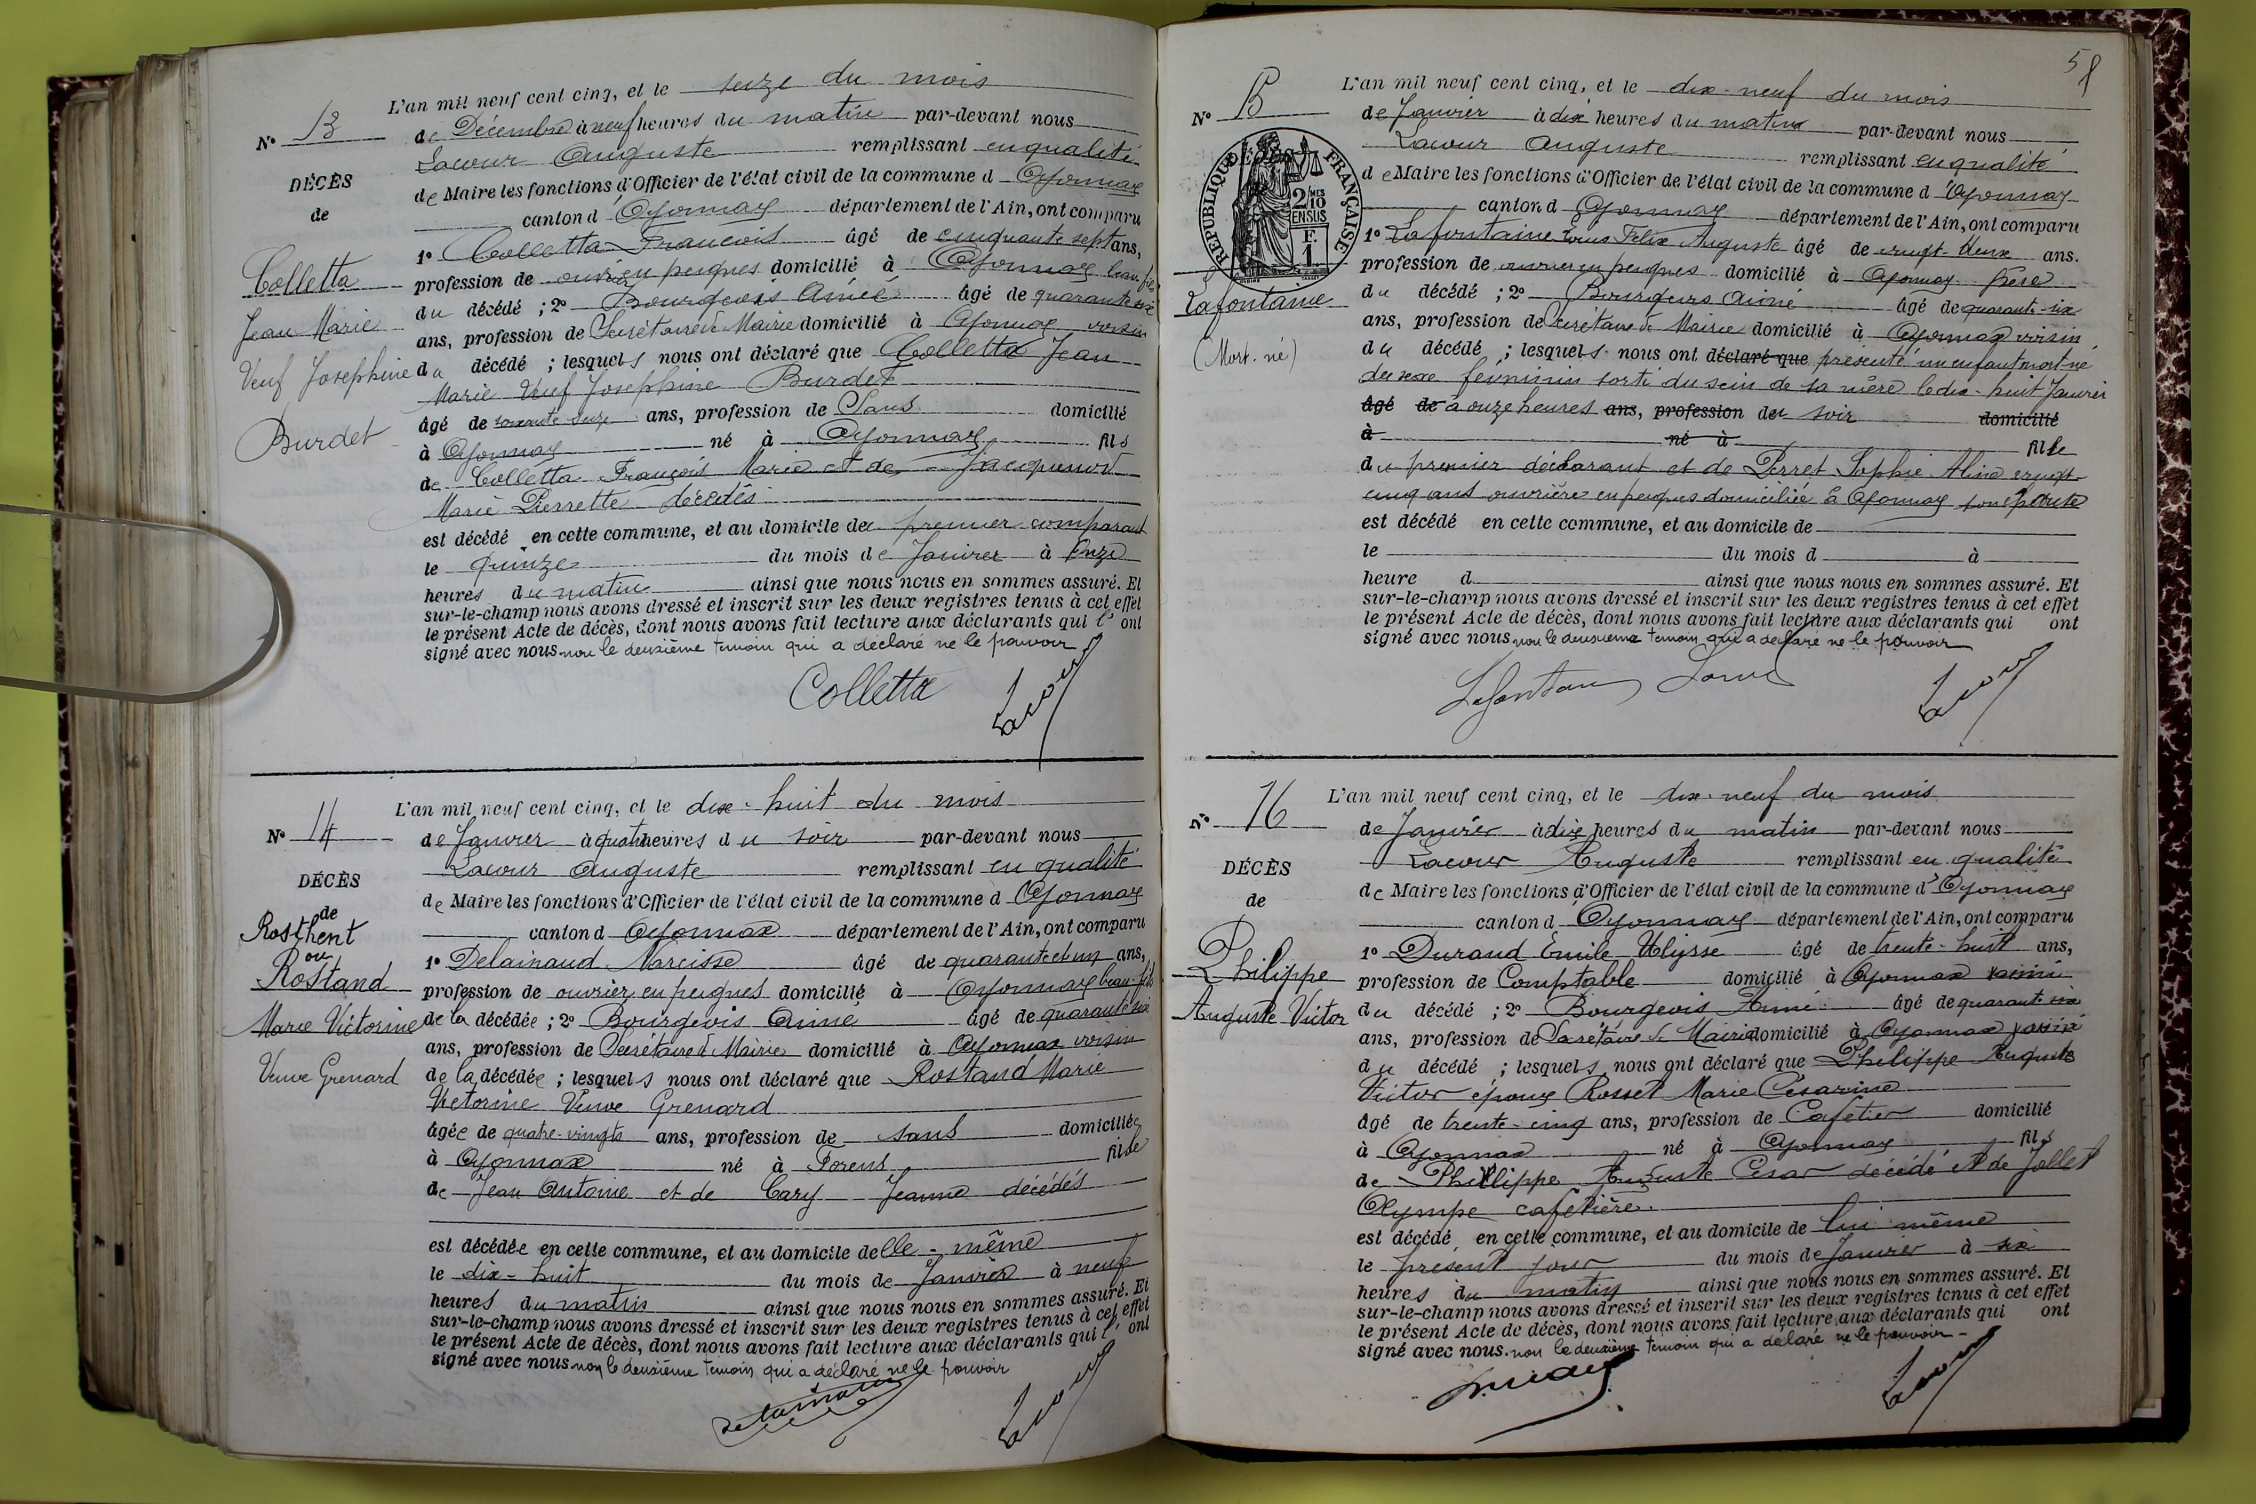 L'an mil neuf cent cinq, et le seize du mois
N° 13
de Décembre à neuf heures du matin par-devant nous
Lacour Auguste remplissant en qualité
DÉCÈS
de Maire les fonctions d'Officier de l'état civil de la commune d Oyonnax
de
canton d Oyonnax département de l'Ain, ont comparu
1° Colletta François âgé de cinquante sept ans,
Colletta
profession de ouvrier en peignes domicilié à Oyonnax beau fils
du décédé ; 2° Bourgeois Aimé âgé de quarante six
Jean Marie
ans, profession de Secrétaire de Mairie domicilié à Oyonnax voisin
Veuf Josephine
du décédé ; lesquels nous ont déclaré que Colletta Jean
Marie Veuf Josephine Burdet
Burdet
âgé de soixante seize ans, profession de Sans domicilié
à Oyonnax né à Oyonnax fils
de Colletta François Marie et de Jacquenod
Marie Pierrette décédés
est décédé en cette commune, et au domicile du premier comparant
le quinze du mois de Janvier à onze
heures du matin ainsi que nous nous en sommes assuré. Et
sur-le-champ nous avons dressé et inscrit sur les deux registres tenus à cet effet
le présent Acte de décès, dont nous avons fait lecture aux déclarants qui l' ont
signé avec nous non le deuxième temoin qui a déclaré ne le pouvoir
Colletta Lacour
L'an mil neuf cent cinq, et le dix-huit du mois
N° 14
de Janvier à quatre heures du soir par-devant nous
Lacour Auguste remplissant en qualité
DÉCÈS
de Maire les fonctions d'Officier de l'état civil de la commune d Oyonnax
de
Rosthent
canton d Oyonnax département de l'Ain, ont comparu
ou
1° Delainaud Narcisse âgé de quarante et un ans,
Rostand
profession de ouvrier en peignes domicilié à Oyonnax beau-fils
Marie Victorine
de la décédée ; 2° Bourgeois Aimé âgé de quarante six
ans, profession de Secrétaire de Mairie domicilié à Oyonnax voisin
Veuve Grenard
de la décédée ; lesquels nous ont déclaré que Rostand Marie
Victorine Veuve Grenard
âgée de quatre-vingts ans, profession de sans domiciliée
à Oyonnax né à Forens fille
de Jean Antoine et de Cary Jeanne décédés
est décédée en cette commune, et au domicile delle-même
le dix-huit du mois de Janvier à neuf
heures du matin ainsi que nous nous en sommes assuré. Et
sur-le-champ nous avons dressé et inscrit sur les deux registres tenus à cet effet
le présent Acte de décès, dont nous avons fait lecture aux déclarants qui l' ont
signé avec nous non le deuxième temoin qui a déclaré ne le pouvoir
Lacour
58
L'an mil neuf cent cinq, et le dix-neuf du mois
N° 15
de Janvier à dix heures du matin par-devant nous
Lacour Auguste remplissant en qualité
RÉPUBLIQUE FRANÇAISE
2 MES 10 EN SUS
F. 1
de Maire les fonctions d'Officier de l'état civil de la commune d 'Oyonnax
canton d Oyonnax département de l'Ain, ont comparu
1° Lafontaine Louis Felix Auguste âgé de vingt deux ans.
profession de ouvrier en peignes domicilié à Oyonnax Père
Lafontaine
du décédé ; 2° Bourgeois Aimé âgé de quarante-six
ans, profession de Secrétaire de Mairie domicilié à Oyonnax voisin
(Mort-né)
du décédé ; lesquels nous ont déclaré que présenté un enfant mort né
du sexe féminin sorti du sein de sa mère le dix-huit Janvier
âgé de à onze heures ans, profession du soir domicilié
à né à fille
du premier déclarant et de Perret Sophie Alina vingt
cinq ans ouvrière en peignes domiciliée à Oyonnax son épouse
est décédé en cette commune, et au domicile de
le du mois d à
heure d ainsi que nous nous en sommes assuré. Et
sur-le-champ nous avons dressé et inscrit sur les deux registres tenus à cet effet
le présent Acte de décès, dont nous avons fait lecture aux déclarants qui ont
signé avec nous non le deuxième temoin qui a déclaré ne le pouvoir
Lafontaine Louis Lacour
L'an mil neuf cent cinq, et le dix-neuf du mois
N° 16
de Janvier à dix heures du matin par-devant nous
Lacour Auguste remplissant en qualité
DÉCÈS
de Maire les fonctions d'Officier de l'état civil de la commune d'Oyonnax
de
canton d Oyonnax département de l'Ain, ont comparu
1° Durand Emile Ulysse âgé de trente-huit ans,
Philippe
profession de Comptable domicilié à Oyonnax voisin
Auguste Victor
du décédé ; 2° Bourgeois Aimé âgé de quarante six
ans, profession de Secrétaire de Mairie domicilié à Oyonnax voisin
du décédé ; lesquels nous ont déclaré que Philippe Auguste
Victor époux Rosset Marie Césarine
âgé de trente-cinq ans, profession de Cafetier domicilié
à Oyonnax né à Oyonnax fils
de Philippe Auguste César décédé et de Jollet
Olympe cafetière
est décédé en cette commune, et au domicile de lui même
le présent jour du mois de Janvier à six
heures du matin ainsi que nous nous en sommes assuré. Et
sur-le-champ nous avons dressé et inscrit sur les deux registres tenus à cet effet
le présent Acte de décès, dont nous avons fait lecture aux déclarants qui ont
signé avec nous non le deuxième temoin qui a déclaré ne le pouvoir
Lacour